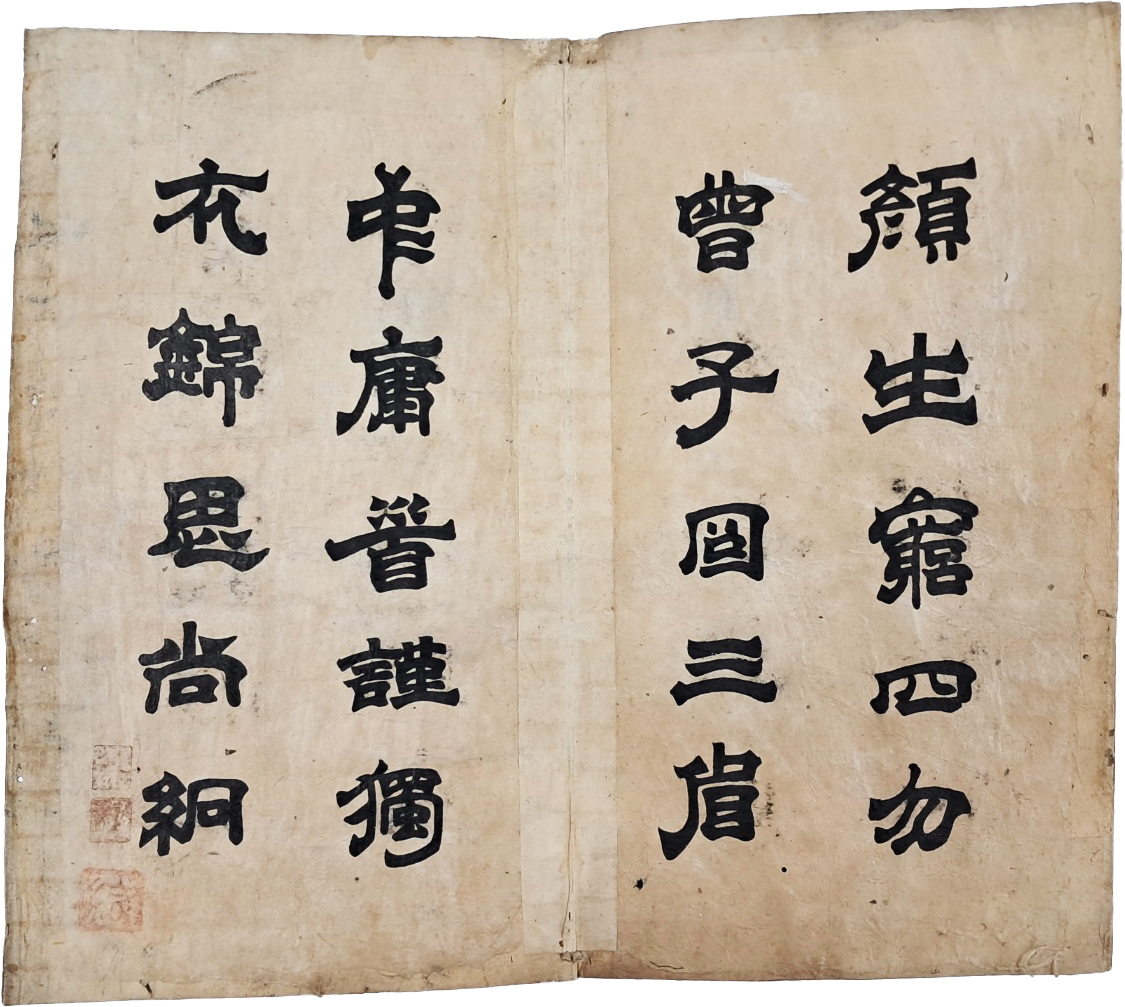 顔生竆四勿
曾子日三省
中庸首謹獨
衣錦思尚絅